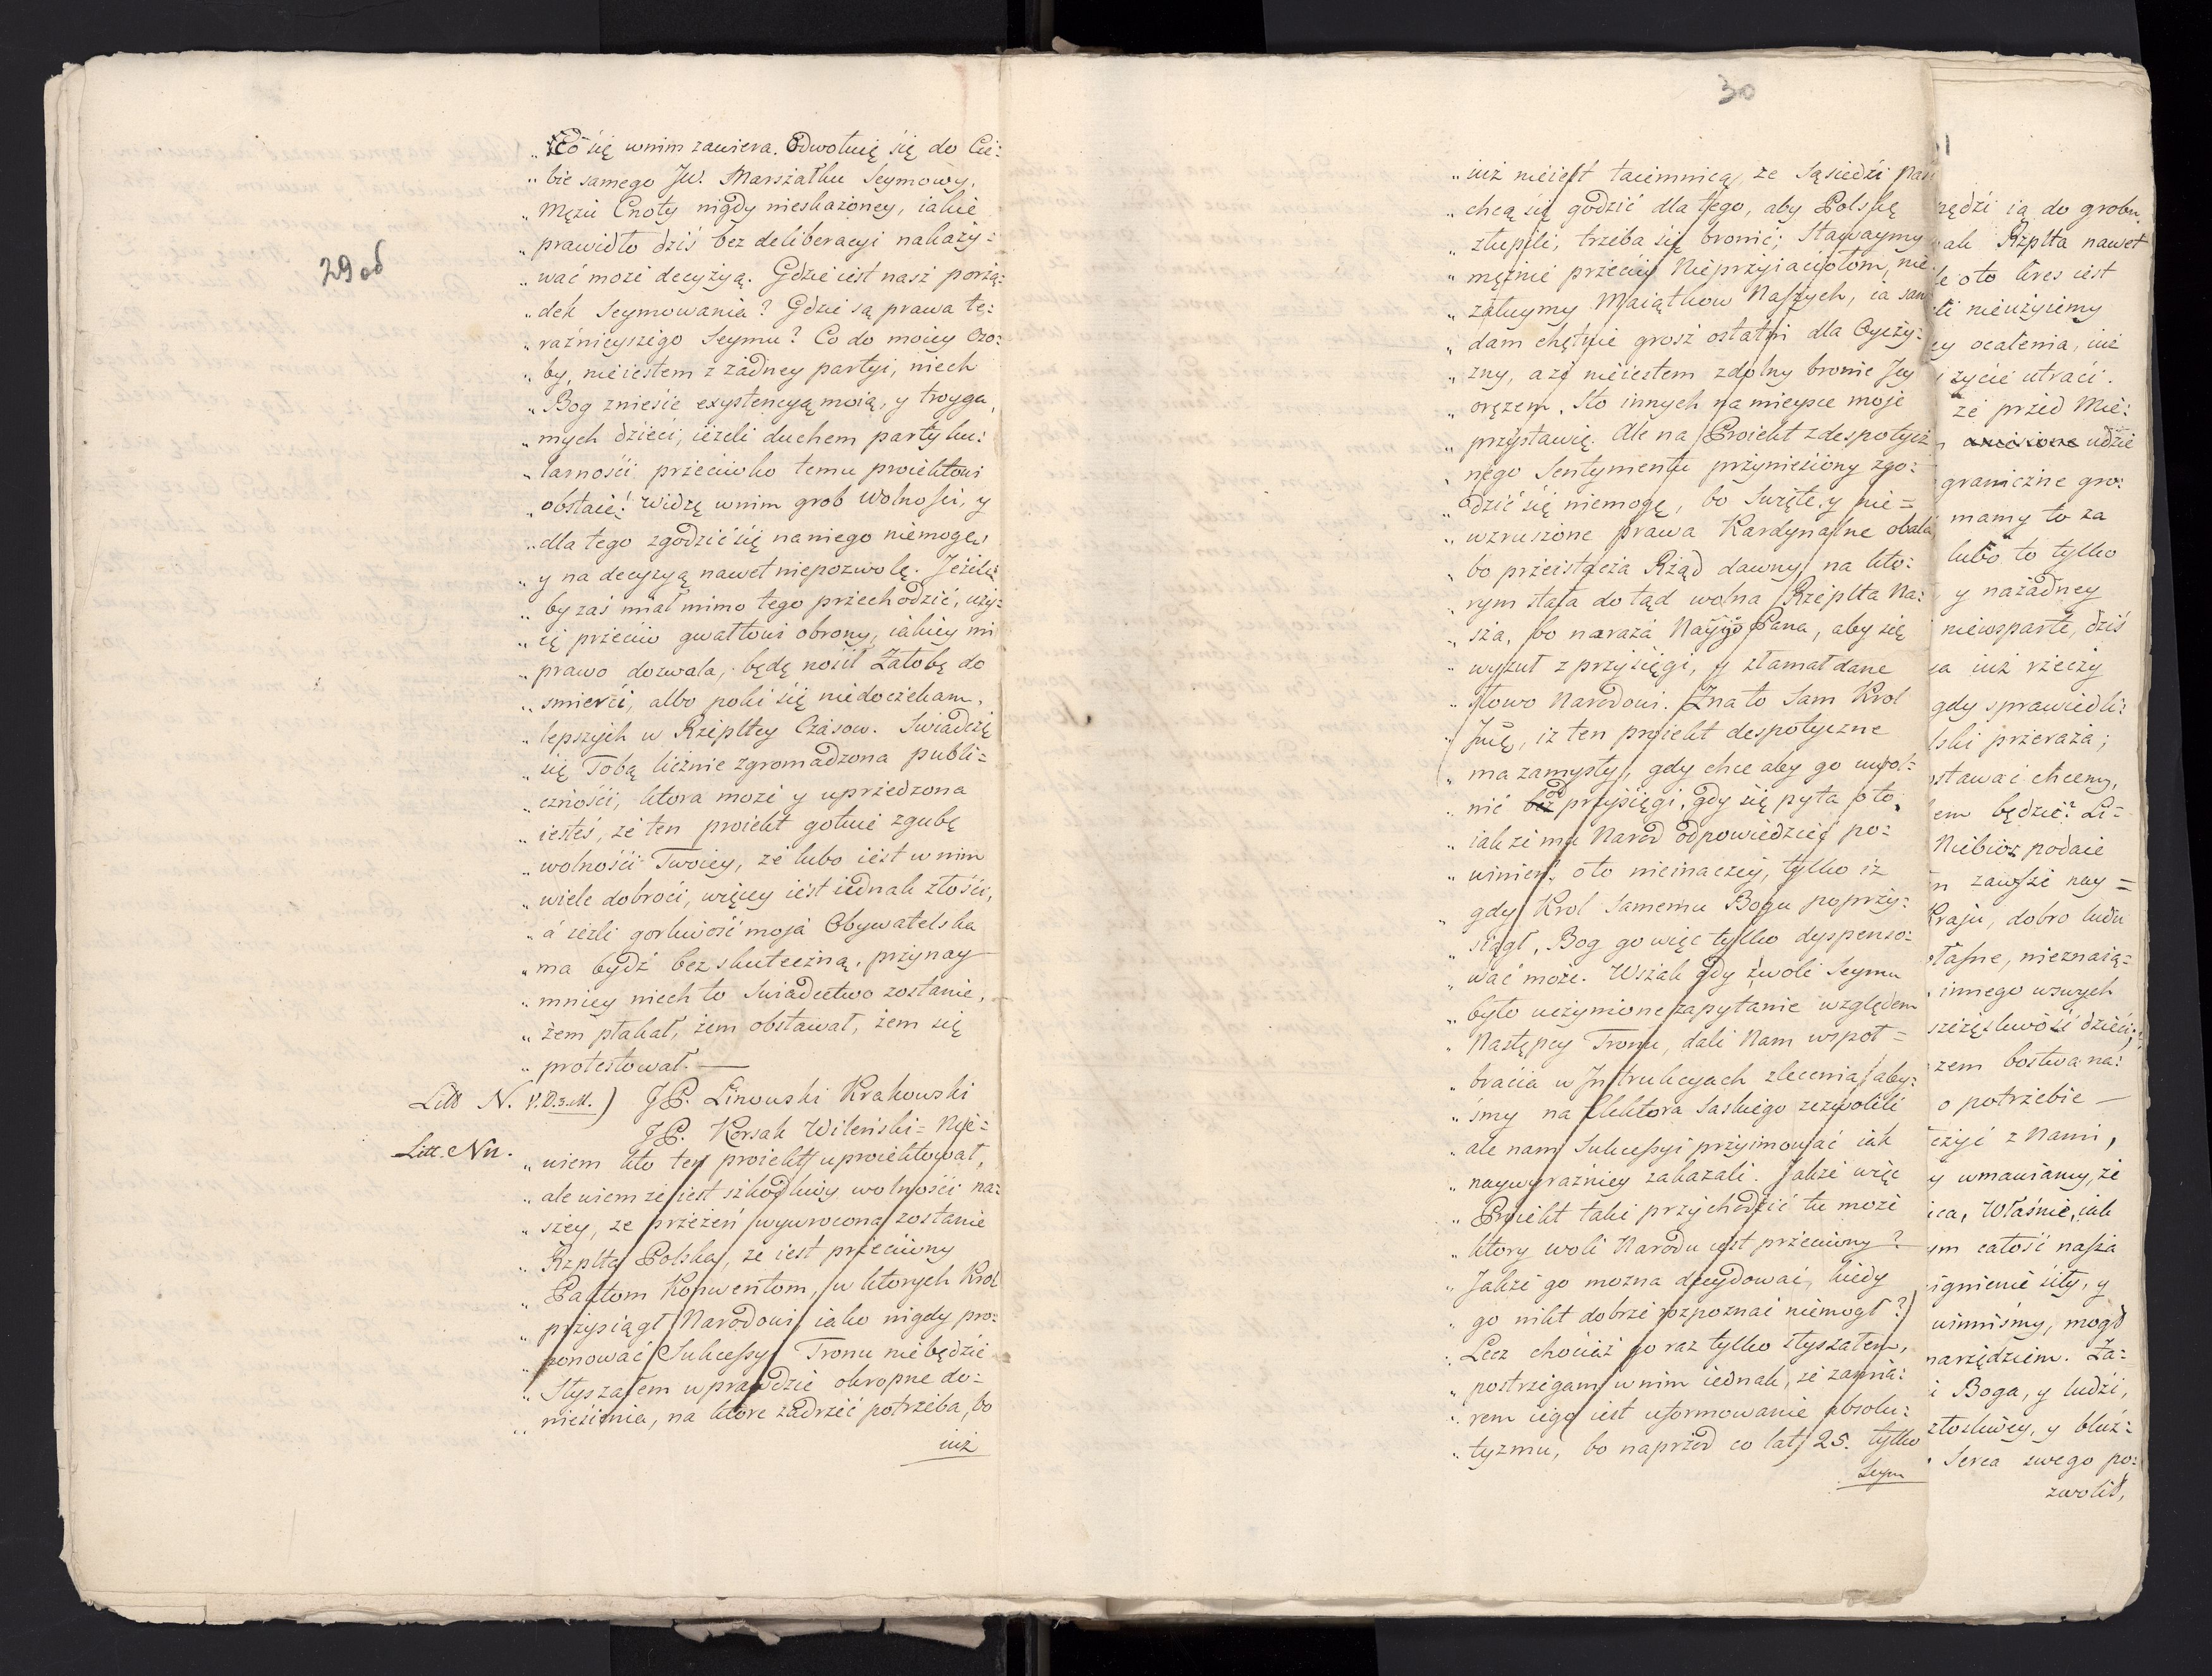 29 od
„ Co się wnim zawiera. Odwołuię się do Cie:
„ bie samego JW. Marszałku Seymowy,
„ Mężu Cnoty nigdy nieskażoney, iakie
„ prawidło dziś bez deliberacyi nakazy=
„ wać może decyzyą. Gdzie iest nasz porżą:
„ dek Seymowania? Gdzie są prawa te:
„ raźnieyszego Seymu? Co do moiey Ozo:
„ by, nieiestem z żadney partyi, niech
„ Bog zniesie exystencyą moią, y troyga,
„ mych dzieci, ieżeli duchem partyku:
„ larności przeciwko temu proiektowi
„ obstaię! widzę wnim grob Wolności, y
„ dla tego zgodzić się na niego niemogę,
„ y na decyzyą nawet niepozwolę. Jeżeli
„ by zaś miał mimo tego przechodzić, uży:
„ ię przeciw gwałtowi obrony, iakiey mi
„ prawo dozwala, będę nosił Żałobę do
„ smierci, albo poki się niedoczekam,
„ lepszych w Rzepltey Czasow. Swiadczę
„ się Tobą licznie zgromadzona publi=
„ czności, ktora może y uprzedzona
„ iesteś, że ten proiekt gotuie zgubę
„ wolności Twoiey, że lubo iest w nim
„ wiele dobroci, więcey iest iednak złości,
„ á ieźli gorliwość moja Obywatelska
„ ma bydź bezskuteczną, przynay
„ mniey niech to Swiadectwo zostanie,
„ żem płakał, żem obstawał, żem się
„ protestował. —
Litt N. V.D.s.M.) JP. Linowski Krakowski
JP. Korsak Wileński = Nie=
Litt. Nn. „ wiem kto ten proiekt uproiektował,
„ ale wiem że iest szkodliwy wolności na:
„ szey, ze przezeń wywrocona zostanie
„ Rzplta Polska, że iest przeciwny
„ Paktom Konwentom, w ktorych Krol
„ przysiągł Narodowi iako nigdy pro:
„ ponować Sukcessyi Tronu niebędzie
„ Słyszałem wprawdzie okropne do=
„ niesienia, na ktore zadrzeć potrzeba, bo
iuż
30
„ iuż nieiest taiemnicą, ze Sąsiedzi
„ chcą się godzić dla tego, aby Polskę
„ złupili, trzeba się bronić; Stawaymy
„ mężnie przeciw Nieprzyiaciołom, nie
„ żałuymy Maiątkow Naszych, ia sam
„ dam chętnie grosz ostatni dla Oyczy:
„ zny, a że nieiestem zdolny bronić Jey
„ orężem, Sto innych na mieysce moje
„ przystawię. Ale na Proiekt z despotycz
„ nego Sentymentu przyniesiony zgo=
„ dzić się niemogę, bo Swięte y nie=
„ wzruszone prawa Kardynalne obala
„ bo przeistacza Rząd dawny, na kto:
„ rym stała dotąd wolna Rzeplta Na:
„ sza, bo naraża Nayjo Pana, aby się
„ wyzuł z przysięgi, y złamał dane
„ słowo Narodowi. Zna to Sam Krol
„ Jmć, iż ten proiekt despotyczne
„ ma zamysły, gdy chce aby go uwol:
„ nić od przysięgi, gdy się pyta o to,
„ iakże mu Narod odpowiedzieć po:
„ winien, oto nieinaczey, tylko iz
„ gdy Krol Samemu Bogu poprzy:
„ siągł, Bog go więc tylko dyspenso:
„ wać może. Wszak gdy z woli Seymu
„ było uczynione zapytanie względem
„ Następcy Tronu, dali Nam wspoł=
„ bracia w Instrukcyach zlecenia aby:
„ śmy na Elektora Saskiego zezwolili
„ ale nam Sukcessyi przyimować iak
„ naywyraźniey zakazali. Jakże więc
„ Proiekt taki przychodzić tu może
„ ktory woli Narodu iest przeciwny?
„ Jakże go można decydować, kiedy
„ go nikt dobrze rozpoznać niemogł?
„ Lecz chociaż go raz tylko słyszałem,
„ postrzegam w nim iednak, że zamia:
„ rem iego iest uformowanie absolu:
„ tyzmu, bo naprzod co lat 25. tylko
Seym
pędzi ią do grobu
ale Rzplta nawet
oto kres iest
nieużyiemy
ey ocalenia, iuż
życie utraci.
że przed Mie:
udzie
graniczne gro:
mamy to za
lubo to tylko
y na żadney
niewsparte, dziś
ia iuż rzeczy
gdy sprawiedli:
lski przeraża;
ostawać chcemy,
em będzie? Li=
Niebios podaie
n zawsze nay=
Kraju, dobro ludu
własne, nieznaią=
innego wswych
szczęsliwość dzieci,
zem bostwa na:
o potrzebie —
eżyć z Nami,
y wmawiamy, że
ica, Własnie, iak
ym całość nasza
ignienie siły, y
winniśmy, mogł
narzędziem. Za=
i Boga, y ludzi,
złosliwey, y bluź=
Serca swego po:
zwolił,